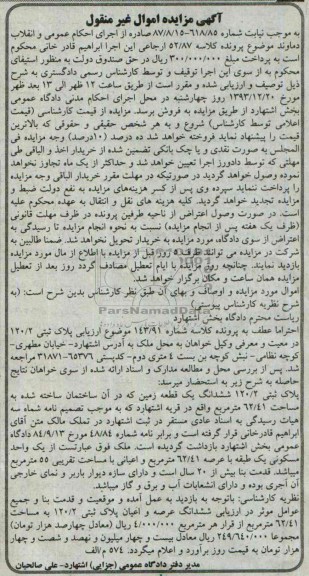 آگهی مزایده اموال غیر منقول
به موجب نیابت شماره ۶۱۸/۸۵-۸۷/۸/۱۵ صادره از اجرای احکام عمومی و انقلاب
دماوند موضوع پرونده کلاسه ۵۲/۸۷ ارجاعی این اجرا ابراهیم قادر خانی محکوم
است به پرداخت مبلغ ۳۰۰/۰۰۰/۰۰۰ ریال در حق صندوق دولت به منظور استیفای
محکوم به از سوی این اجرا توقیف و توسط کارشناس رسمی دادگستری به شرح
ذیل توصیف و ارزیابی شده و مقرر است از طریق ساعت ۱۲ ظهر الی ۱۳ بعد ظهر
مورخ ۱۳۹۳/۱۲/۲۰ روز چهارشنبه در محل اجرای احکام مدنی دادگاه عمومی
بخش اشتهارد از طریق مزایده به فروش برسد. مزایده از قیمت کارشناسی (قیمت
اعلامی توسط کارشناس) شروع و به هر شخص حقیقی و حقوقی که بالاترین
قیمت را پیشنهاد نماید فروخته خواهد شد ده درصد (۱۰درصد) وجه مزایده فی
المجلس به صورت نقدی و یا چک بانکی تضمین شده از خریدار اخذ و الباقی طی
مهلتی که توسط دادورز اجرا تعیین خواهد شد و حداکثر از یک ماه تجاوز نخواهد
نموده وصول خواهد گردید در صورتیکه در مهلت مقرر خریدار الباقی وجه مزایده
را پرداخت ننماید سپرده وی پس از کسر هزینه‌های مزایده به نفع دولت ضبط و
مزایده تجدید خواهد گردید. کلیه هزینه های نقل و انتقال به عهده محکوم علیه
است. در صورت وصول اعتراض از ناحیه طرفین پرونده در ظرف مهلت قانونی
(ظرف یک هفته پس از انجام مزایده) نسبت به نحوه انجام مزایده تا رسیدگی به
اعتراض از سوی دادگاه، مورد مزایده به خریدار تحویل نخواهد شد. ضمنا طالبین به
شرکت در مزایده می توانند ظرف ۵ روز قبل از مزایده با اطلاع از مال مورد مزایده
بازدید نمایند. چنانچه روز مزایده با ایام تعطیل مصادف گردد روز بعد از تعطیل
مزایده همان ساعت و مکان برگزار خواهد شد.
اموال مورد مزایده و اوصاف و بهای آن طبق نظر کارشناس بدین شرح است: (به
شرح نظریه کارشناس پیوستی)
ریاست محترم دادگاه بخش اشتهارد
احتراما عطف به پرونده کلاسه شماره ۱۴۳/۹۱ موضوع ارزیابی پلاک ثبتی ۱۲۰/۲
در معیت و معرفی وکیل خواهان به محل ملک به آدرس اشتهارد- خیابان مطهری-
کوچه نظامی- نبش کوچه بن بست ۴ متری دوم- کدپستی ۶۵۳۷۶-۳۱۸۷۱ مراجعه
شد. پس از بررسی محل و مطالعه مدارک و اسناد ارائه شده از سوی خواهان نتایج
حاصله به شرح زیر به استحضار میرسد:
پلاک ثبتی ۱۲۰/۲ ششدانگ یک قطعه زمین که در آن ساختمان ساخته شده به
مساحت ۶۲/۴۱ مترمربع واقع در قریه اشتهارد که به موجب تصمیم نامه شماه سه
هیات رسیدگی به اسناد عادی مستقر در ثبت اشتهارد در تملک مالک متن آقای
ابراهیم قادرخانی قرار گرفته است و برابر نامه شماره ۴۸/۸۴ مورخ ۸۴/۹/۱۳ دادگاه
عمومی بخش اشتهارد بازداشت گردیده است. ملک فوق عبارتست از یک واحد
مسکونی یک طبقه با عرصه ۶۲/۴۱ مترمربع و اعیانی با مساحت تقریبی ۵۵ مترمربع
میباشد. قدمت بنا بیش از ۲۰ سال است و دارای سازه دیوار باربر و نمای خارجی
آن آجری بوده و دارای انشعابات آب و برق و گاز میباشد.
نظریه کارشناسی: باتوجه به بازدید به عمل آمده و موقعیت و قدمت بنا و جمیع
عوامل موثر در ارزیابی ششدانگ عرصه و اعیان پلاک ثبتی ۱۲۰/۲ به مساحت
۶۲/۴۱ مترمربع از قرار هر مترمربع ۴/۰۰۰/۰۰۰ ریال (معادل چهارصد هزار تومان)
مجموعا ۲۴۹/۶۴۰/۰۰۰ ریال معادل بیست و چهار میلیون و نهصد و شصت و چهار
هزار تومان به قیمت روز برآورد و اعلام میگردد. ۵۷۴ م/الف
مدیر دفتر دادگاه عمومی (جزایی) اشتهارد- علی صالحیان